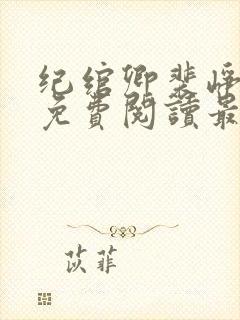 纪绾卿裴峥
免費閱讀最
苡菲